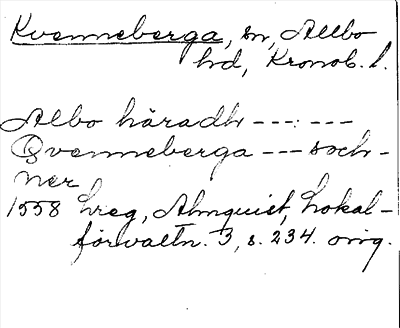 Kvenneberga, sn, Allbo
hd, Kronob. l.
Albo häradh ---:---
Qvenneberga --- soch-
ner
1558 hreg, Almquist, Lokal-
förvaltn. 3, s. 234. orig.